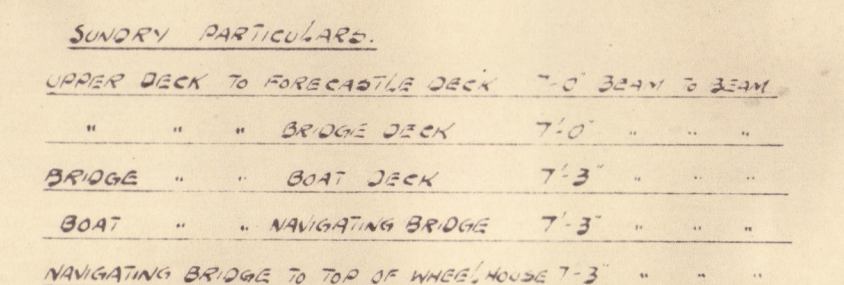 SUNDRY PARTICULARS.
UPPER DECK TO FORECASTLE DECK 7'-0" BEAM TO BEAM
" " " BRIDGE DECK 7'-0" " " "
BRIDGE " " BOAT DECK 7'-3" " " "
BOAT " " NAVIGATING BRIDGE 7'-3" " " "
NAVIGATING BRIDGE TO TOP OF WHEEL HOUSE 7'-3" " " "